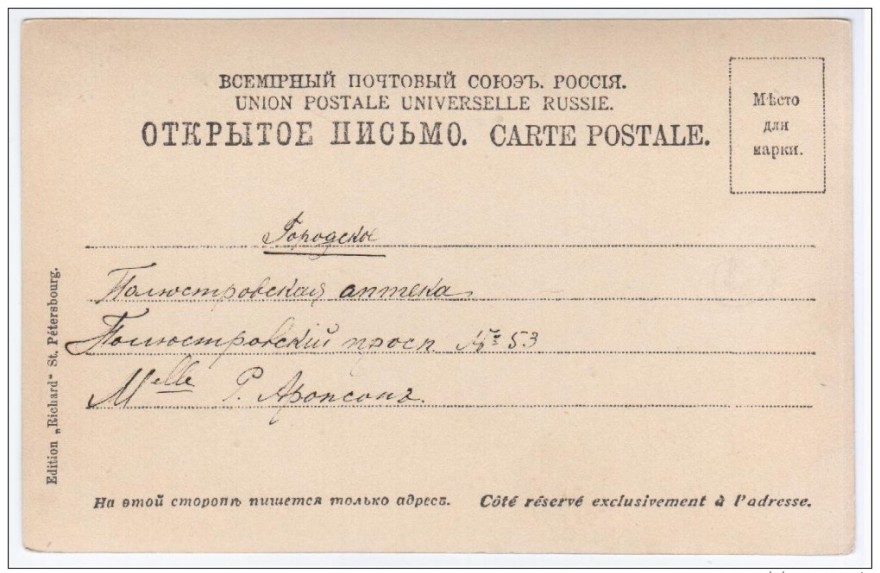 ВСЕМІРНЫЙ ПОЧТОВЫЙ СОЮЗЪ. РОССІЯ.
UNION POSTALE UNIVERSELLE RUSSIE.
ОТКРЫТОЕ ПИСЬМО. CARTE POSTALE.
Мѣсто
для
марки.
Городское
Полюстровская аптека
Полюстровскій просп № 53
Melle Р. Аронсонъ
На этой сторонѣ пишется только адресъ. Côté réservé exclusivement à l'adresse.
Edition „Richard" St. Pétersbourg.